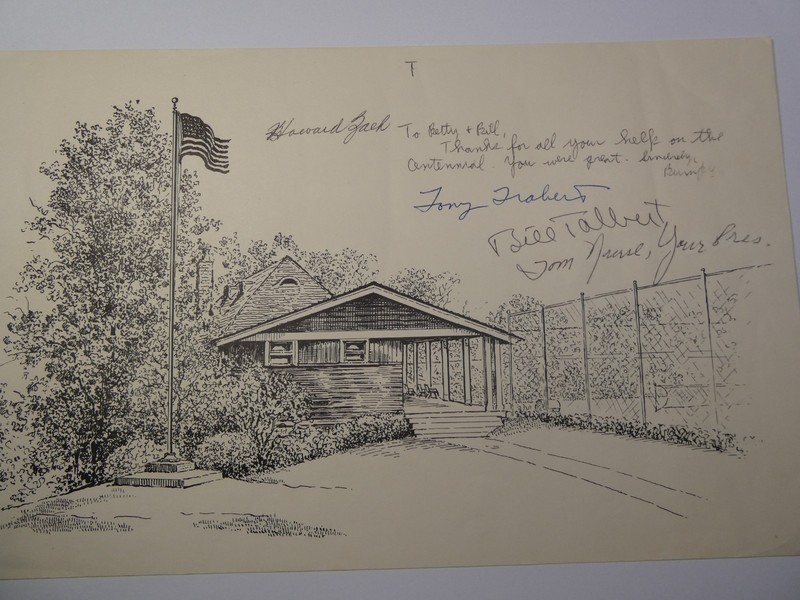 T
Howard Zaeh
To Betty + Bill,
Thanks for all your help on the
Centennial. You were great. Sincerely,
Bumpy
Tony Trabert
Bill Talbert
Tom Nurse, Your Pres.